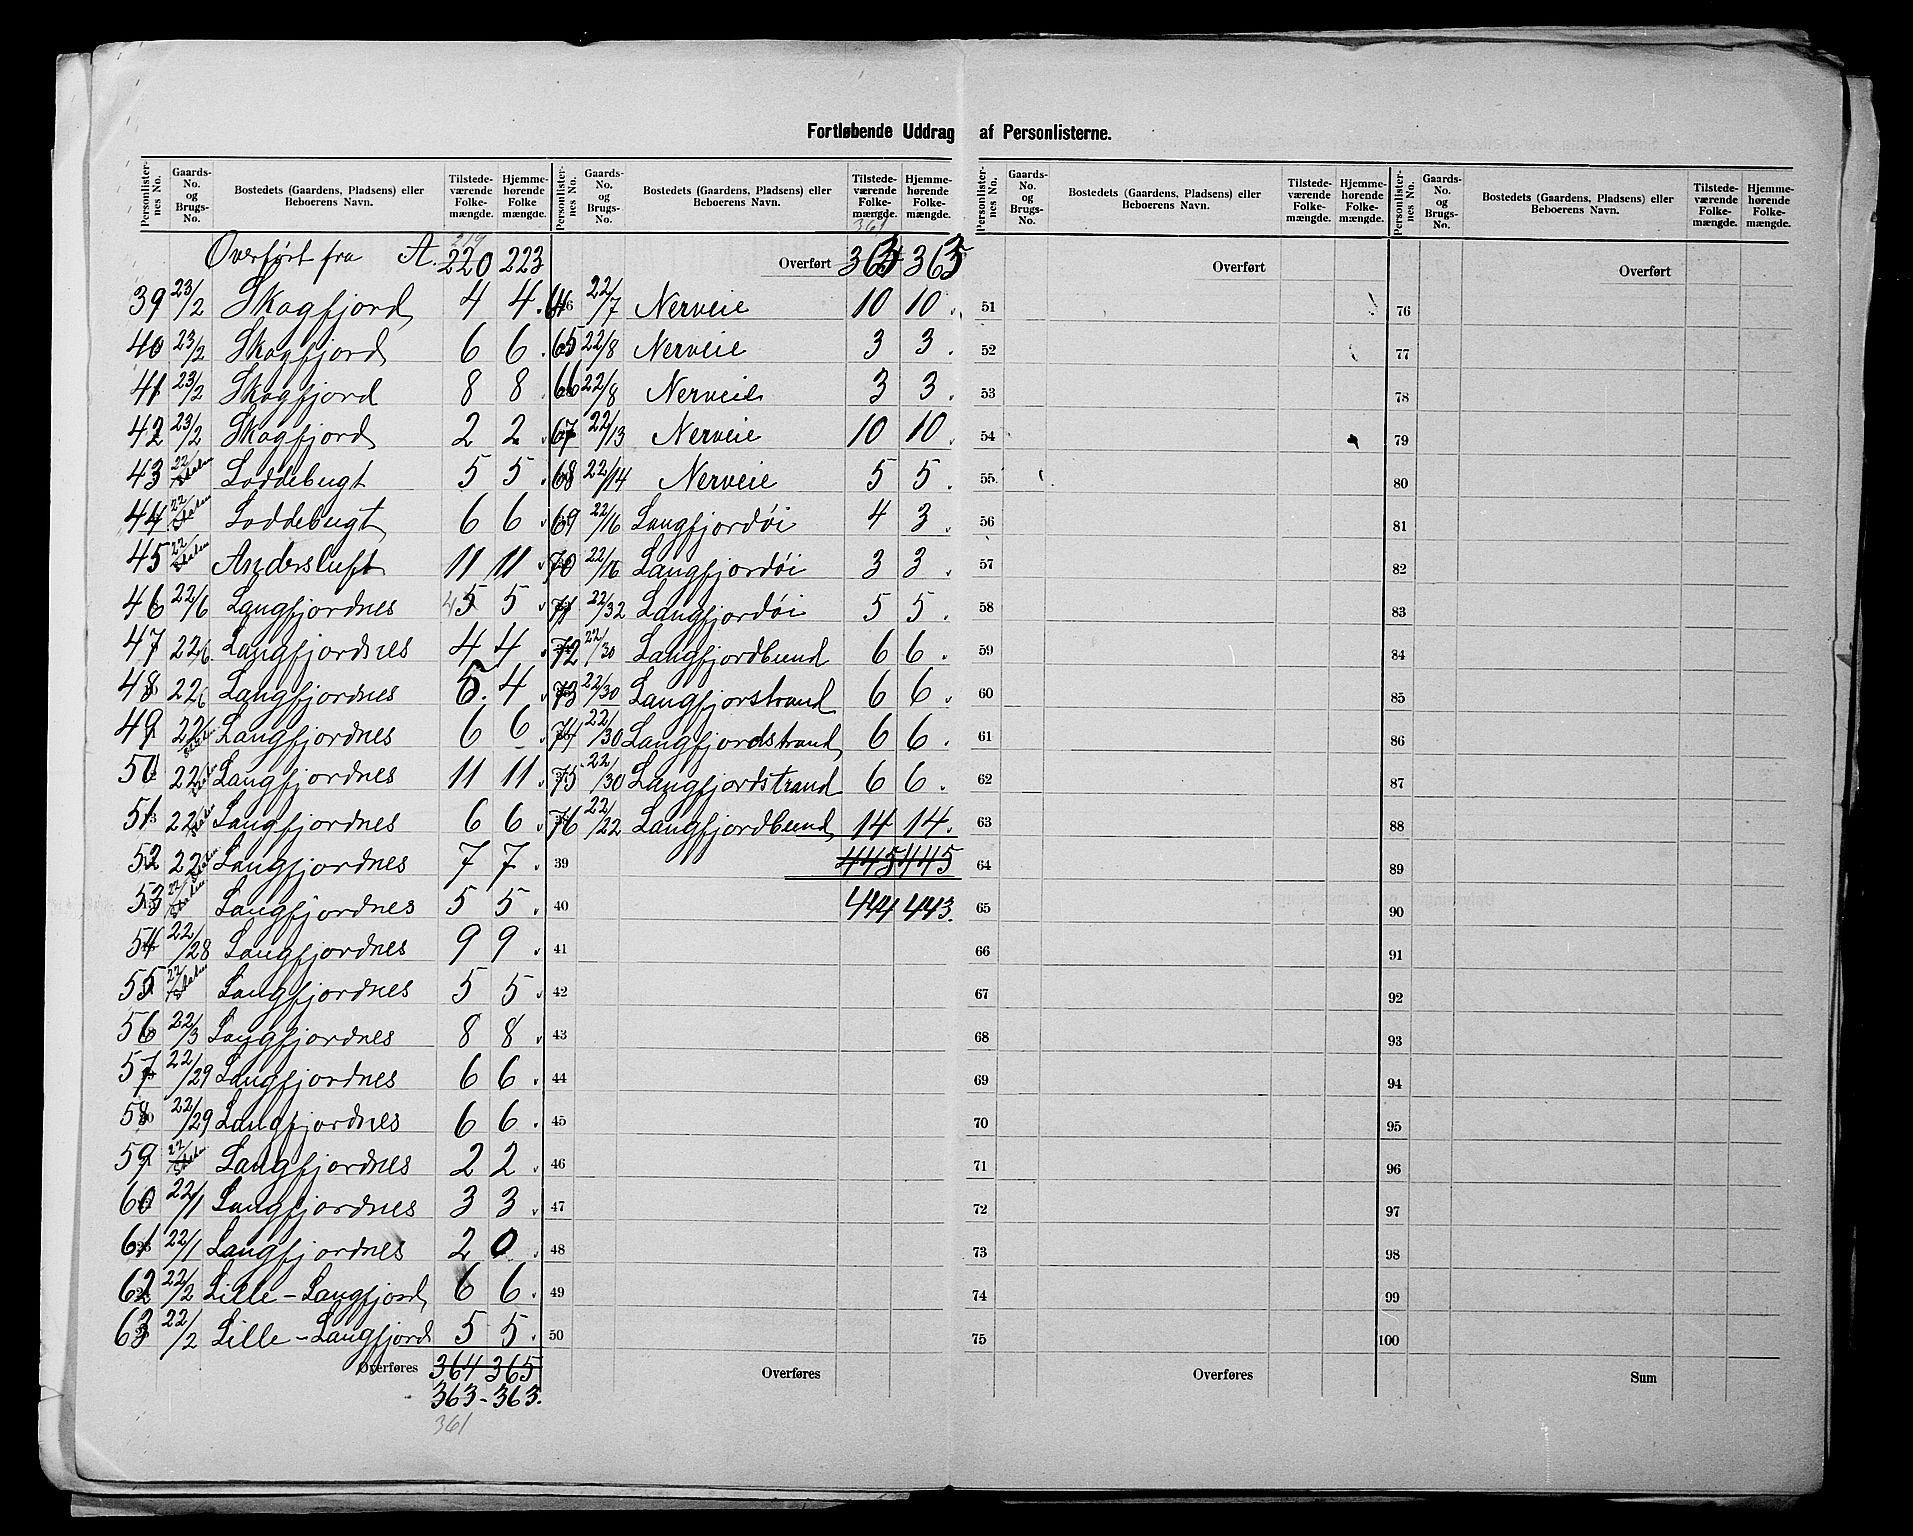 Fortløbende Uddrag af Personlisterne.
Personlister-nes No. | Gaards-No. og Brugs-No. | Bostedets (Gaardens, Pladsens) eller Beboerens Navn. | Tilstede-værende Folke-mængde. | Hjemme-hørende Folke mængde.
Overført fra A. 219 220 223
39 23/2 Skogfjord 4 4
40 23/2 Skogfjord 6 6
41 23/2 Skogfjord 8 8
42 23/2 Skogfjord 2 2
43 22/Staten Loddebugt 5 5
44 22/Staten Loddebugt 6 6
45 22/Staten Andersluft 11 11
46 22/6 Langfjordnes 45 5
47 22/6 Langfjordnes 4 4
48 22/6 Langfjordnes 5 4
49 22/6 Langfjordnes 6 6
50 22/Staten Langfjordnes 11 11
51 22/Staten Langfjordnes 6 6
52 22/Staten Langfjordnes 7 7
53 22/Staten Langfjordnes 5 5
54 22/28 Langfjordnes 9 9
55 22/Staten Langfjordnes 5 5
56 22/3 Langfjordnes 8 8
57 22/29 Langfjordnes 6 6
58 22/29 Langfjordnes 6 6
59 22/Staten Langfjordnes 2 2
60 22/1 Langfjordnes 3 3
61 22/1 Langfjordnes 2 0
62 22/2 Lille-Langfjord 6 6
63 22/2 Lille-Langfjord 5 5
Overføres 364 365
363 - 363.
361
Personlister-nes No. | Gaards-No. og Brugs-No. | Bostedets (Gaardens, Pladsens) eller Beboerens Navn. | Tilstede-værende Folke-mængde. | Hjemme-hørende Folke-mængde.
361
Overført 363 363
64 22/7 Nerveie 10 10
65 22/8 Nerveie 3 3
66 22/8 Nerveie 3 3
67 22/13 Nerveie 10 10
68 22/14 Nerveie 5 5
69 22/16 Langfjordøi 4 3
70 22/16 Langfjordøi 3 3
71 22/32 Langfjordøi 5 5
72 22/30 Langfjordbund 6 6
73 22/30 Langfjorstrand 6 6
74 22/30 Langfjordstrand 6 6
75 22/30 Langfjordstrand 6 6
76 22/22 Langfjordbund 14 14
39 445 445
40 444 443.
41
42
43
44
45
46
47
48
49
50
Overføres
Personlister-nes No. | Gaards-No. og Brugs-No. | Bostedets (Gaardens, Pladsens) eller Beboerens Navn. | Tilstede-værende Folke-mængde. | Hjemme-hørende Folke-mængde.
Overført
51
52
53
54
55
56
57
58
59
60
61
62
63
64
65
66
67
68
69
70
71
72
73
74
75
Overføres
Personlister-nes No. | Gaards-No. og Brugs-No. | Bostedets (Gaardens, Pladsens) eller Beboerens Navn. | Tilstede-værende Folke-mængde. | Hjemme-hørende Folke-mængde.
Overført
76
77
78
79
80
81
82
83
84
85
86
87
88
89
90
91
92
93
94
95
96
97
98
99
100
Sum